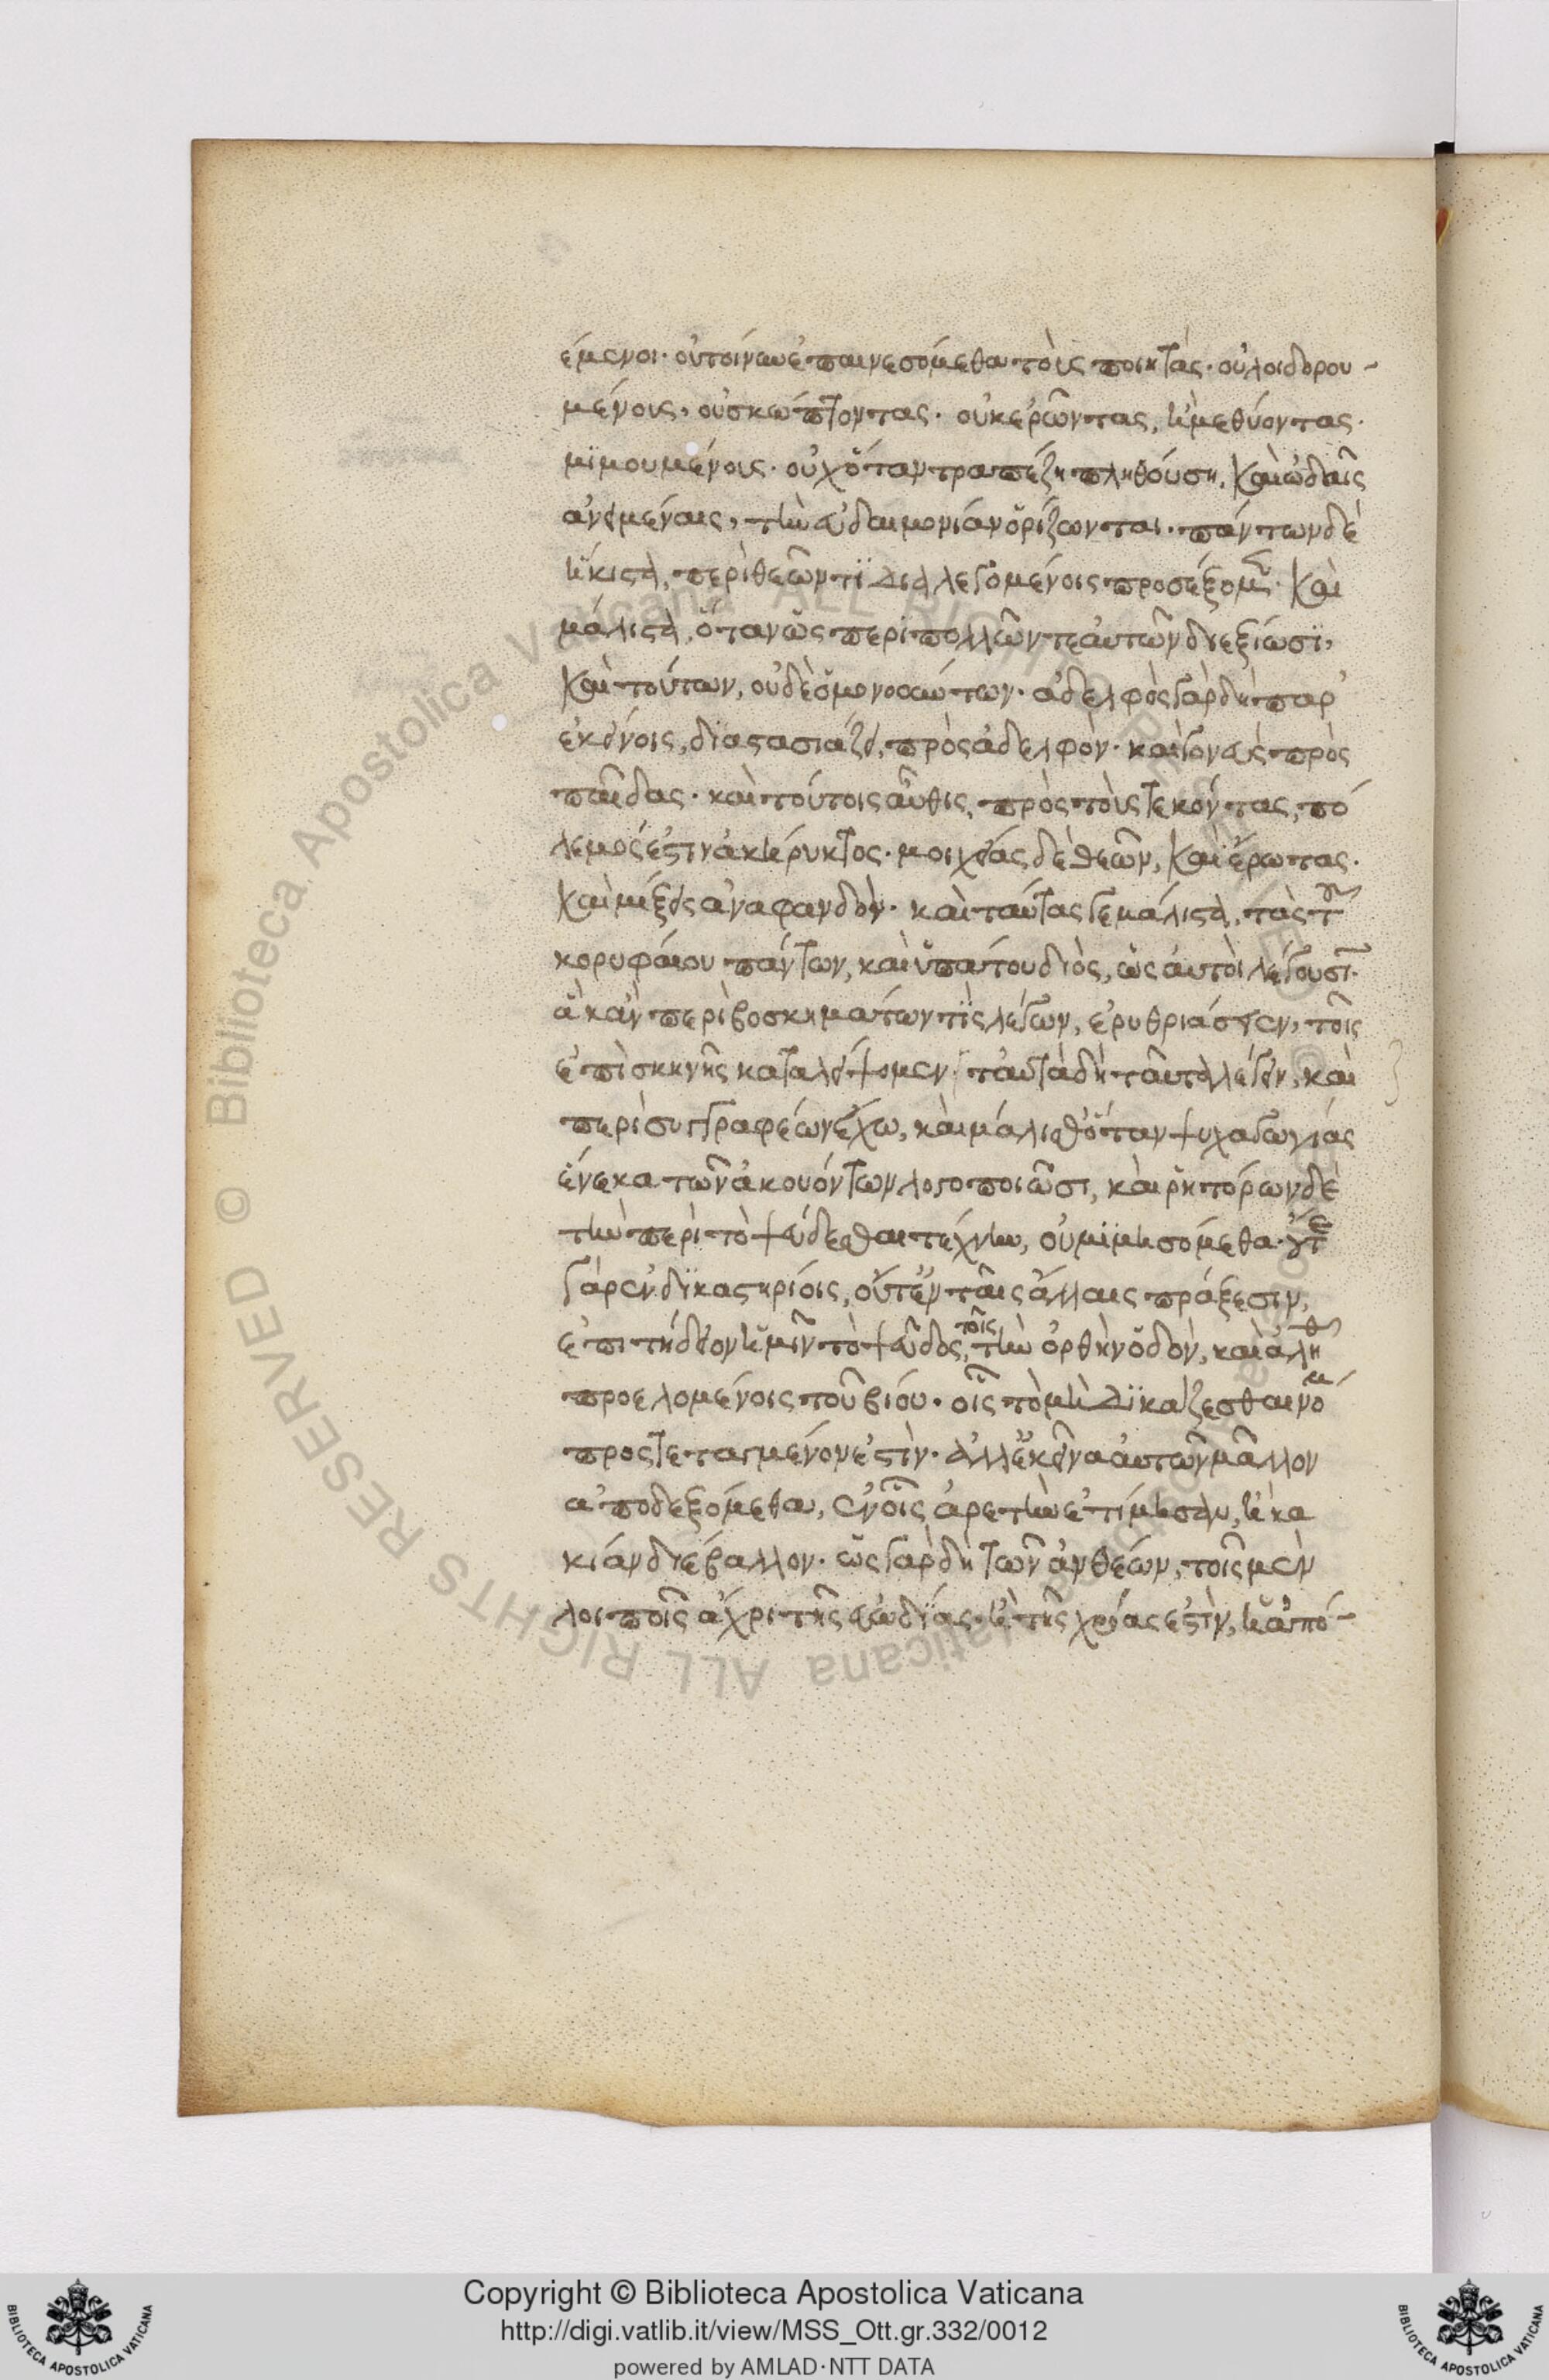 έμενοι· οὐ τοίνυν ἐπαινεσόμεθα τοὺς ποιητὰς· οὐ λοιδορου-
μένους, οὐ σκώπτοντας· οὐκ ἐρῶντας, ἢ μεθύοντας·
μιμουμένους· οὐχ ὅταν τραπέζη πληθούση, καὶ ὠδαῖς
ἀνειμέναις, τὴν εὐδαιμονίαν ὁρίζωνται· πάντων δὲ
ἥκιστα, περὶ θεῶν τὶ διαλεγομένοις προσέξομεν· καὶ
μάλιστα, ὅταν ὡς περὶ πολλῶν τε αὐτῶν διεξίωσι,
καὶ τούτων, οὐδὲ ὁμονοούντων· ἀδελφὸς γὰρ δὴ παρ'
ἐκείνοις, διαστασιάζει, πρὸς ἀδελφὸν· καὶ γονεὺς πρὸς
παῖδας· καὶ τούτοις αὖθις, πρὸς τοὺς τεκόντας, πό
λεμός ἐστιν ἀκήρυκτος· μοιχείας δὲ θεῶν, καὶ ἔρωτας·
καὶ μίξεις ἀναφανδὸν· καὶ ταύτας γε μάλιστα, τὰς τοῦ
κορυφαίου πάντων, καὶ ὑπάτου διὸς, ὡς αὐτοὶ λέγουσιν·
ἃ κἂν περὶ βοσκημάτων τὶς λέγων, ἐρυθριάσειεν, τοῖς
ἐπὶ σκηνῆς καταλείψομεν· ταυτὰ δὴ ταῦτα λέγειν, καὶ
περὶ συγγραφέων ἔχω, καὶ μάλισθ' ὅταν ψυχαγωγίας
ἕνεκα τῶν ἀκουόντων λογοποιῶσι, καὶ ῥητόρων δὲ
τὴν περὶ τὸ ψεύδεσθαι τέχνην, οὐ μιμησόμεθα· οὔτε
γὰρ ἐν δικαστηρίοις, οὔτ' ἐν ταῖς ἄλλαις πράξεσιν,
ἐπιτήδειον ἡμῖν τὸ ψεῦδος, τοῖς τὴν ὀρθὴν ὁδὸν, καὶ ἀληθῆ
προελομένοις τοῦ βίου· οἷς τὸ μὴ δικάζεσθαι νόμω
προστεταγμένον ἐστὶν· ἀλλ' ἐκεῖνα αὐτῶν μᾶλλον
ἀποδεξόμεθα, ἐν οἷς ἀρετὴν ἐτίμησαν, ἢ κα
κίαν διέβαλλον· ὡς γὰρ δὴ τῶν ἀνθέων, τοῖς μὲν
λοιποῖς ἄχρι τῆς εὐωδίας· ἢ τῆς χρόας ἐστὶν, ἡ ἀπό-
Copyright © Biblioteca Apostolica Vaticana
http://digi.vatlib.it/view/MSS_Ott.gr.332/0012
powered by AMLAD·NTT DATA